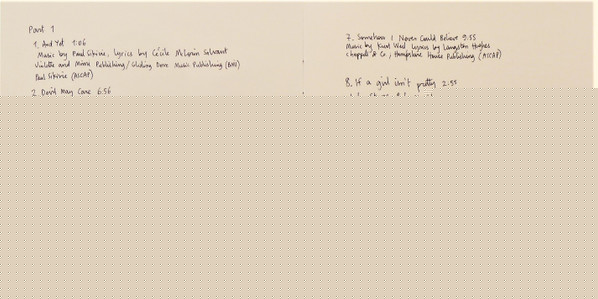 Part 1
1. And Yet 1:06
Music by Paul Sikivie, lyrics by Cécile McLorin Salvant
Violette and Mimi Publishing/Sliding Door Music Publishing (BMI)
Paul Sikivie (ASCAP)
2. Devil May Care 6:56
7. Somehow I Never Could Believe 9:55
Music by Kurt Weil Lyrics by Langston Hughes
Chappell & Co, Hampshire House Publishing (ASCAP)
8. If a girl isn't pretty 2:55